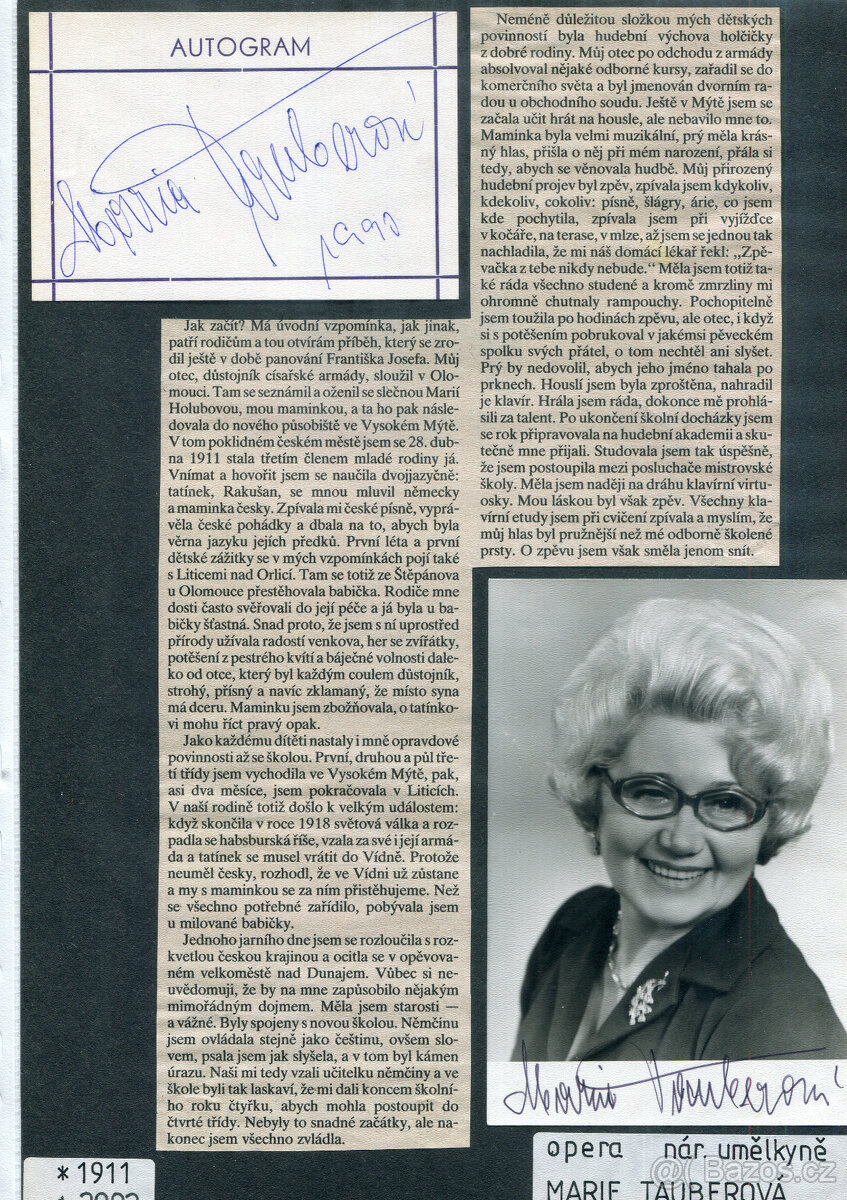 AUTOGRAM
Marie Tauberová
Jak začít? Má úvodní vzpomínka, jak jinak,
patří rodičům a tou otvírám příběh, který se zro-
dil ještě v době panování Františka Josefa. Můj
otec, důstojník císařské armády, sloužil v Olo-
mouci. Tam se seznámil a oženil se slečnou Marií
Holubovou, mou maminkou, a ta ho pak násle-
dovala do nového působiště ve Vysokém Mýtě.
V tom poklidném českém městě jsem se 28. dub-
na 1911 stala třetím členem mladé rodiny já.
Vnímat a hovořit jsem se naučila dvojjazyčně:
tatínek, Rakušan, se mnou mluvil německy
a maminka česky. Zpívala mi české písně, vyprá-
věla české pohádky a dbala na to, abych byla
věrna jazyku jejích předků. První léta a první
dětské zážitky se v mých vzpomínkách pojí také
s Liticemi nad Orlicí. Tam se totiž ze Štěpánova
u Olomouce přestěhovala babička. Rodiče mne
dosti často svěřovali do její péče a já byla u ba-
bičky šťastná. Snad proto, že jsem s ní uprostřed
přírody užívala radostí venkova, her se zvířátky,
potěšení z pestrého kvítí a báječné volnosti dale-
ko od otce, který byl každým coulem důstojník,
strohý, přísný a navíc zklamaný, že místo syna
má dceru. Maminku jsem zbožňovala, o tatínko-
vi mohu říct pravý opak.
Jako každému dítěti nastaly i mně opravdové
povinnosti až se školou. První, druhou a půl tře-
tí třídy jsem vychodila ve Vysokém Mýtě, pak,
asi dva měsíce, jsem pokračovala v Liticích.
V naší rodině totiž došlo k velkým událostem:
když skončila v roce 1918 světová válka a roz-
padla se habsburská říše, vzala za své i její armá-
da a tatínek se musel vrátit do Vídně. Protože
neuměl česky, rozhodl, že ve Vídni už zůstane
a my s maminkou se za ním přistěhujeme. Než
se všechno potřebné zařídilo, pobývala jsem
u milované babičky.
Jednoho jarního dne jsem se rozloučila s roz-
kvetlou českou krajinou a ocitla se v opěvova-
ném velkoměstě nad Dunajem. Vůbec si ne-
uvědomuji, že by na mne zapůsobilo nějakým
mimořádným dojmem. Měla jsem starosti —
a vážné. Byly spojeny s novou školou. Němčinu
jsem ovládala stejně jako češtinu, ovšem slo-
vem, psala jsem jak slyšela, a v tom byl kámen
úrazu. Naši mi tedy vzali učitelku němčiny a ve
škole byli tak laskaví, že mi dali koncem školní-
ho roku čtyřku, abych mohla postoupit do
čtvrté třídy. Nebyly to snadné začátky, ale na-
konec jsem všechno zvládla.
Neméně důležitou složkou mých dětských
povinností byla hudební výchova holčičky
z dobré rodiny. Můj otec po odchodu z armády
absolvoval nějaké odborné kursy, zařadil se do
komerčního světa a byl jmenován dvorním ra-
dou u obchodního soudu. Ještě v Mýtě jsem se
začala učit hrát na housle, ale nebavilo mne to.
Maminka byla velmi muzikální, prý měla krás-
ný hlas, přišla o něj při mém narození, přála si
tedy, abych se věnovala hudbě. Můj přirozený
hudební projev byl zpěv, zpívala jsem kdykoliv,
kdekoliv, cokoliv: písně, šlágry, árie, co jsem
kde pochytila, zpívala jsem při vyjížďce
v kočáře, na terase, v mlze, až jsem se jednou tak
nachladila, že mi náš domácí lékař řekl: „Zpě-
vačka z tebe nikdy nebude.“ Měla jsem totiž ta-
ké ráda všechno studené a kromě zmrzliny mi
ohromně chutnaly rampouchy. Pochopitelně
jsem toužila po hodinách zpěvu, ale otec, i když
si s potěšením pobrukoval v jakémsi pěveckém
spolku svých přátel, o tom nechtěl ani slyšet.
Prý by nedovolil, abych jeho jméno tahala po
prknech. Houslí jsem byla zproštěna, nahradil
je klavír. Hrála jsem ráda, dokonce mě prohlá-
sili za talent. Po ukončení školní docházky jsem
se rok připravovala na hudební akademii a sku-
tečně mne přijali. Studovala jsem tak úspěšně,
že jsem postoupila mezi posluchače mistrovské
školy. Měla jsem naději na dráhu klavírní virtu-
osky. Mou láskou byl však zpěv. Všechny kla-
vírní etudy jsem při cvičení zpívala a myslím, že
můj hlas byl pružnější než mé odborně školené
prsty. O zpěvu jsem však směla jenom snít.
Marie Tauberová
opera nár. umělkyně
MARIE TAUBEROVÁ
* 1911
@ Bazos.cz